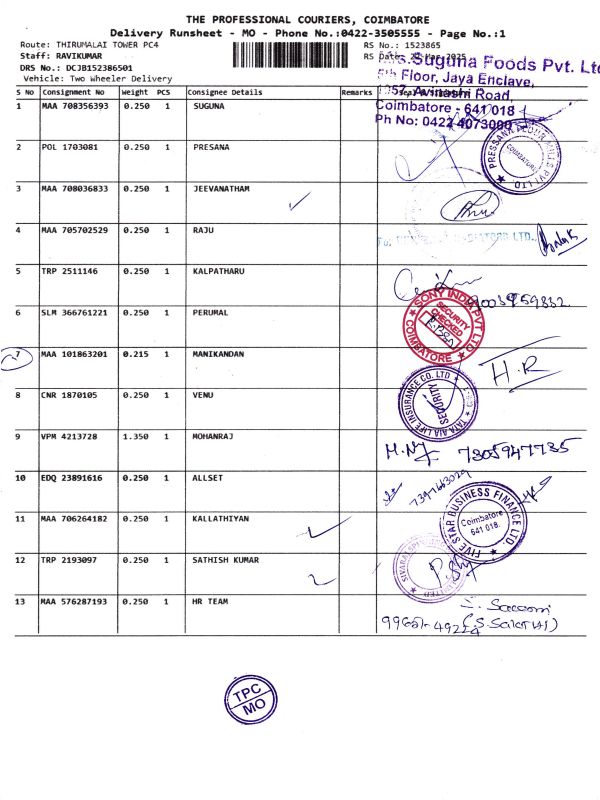 THE PROFESSIONAL COURIERS, COIMBATORE
Delivery Runsheet - MO - Phone No.:0422-3505555 - Page No.:1
Route: THIRUMALAI TOWER PC4
RS No.: 1523865
Staff: RAVIKUMAR
RS Date:
DRS No.: DCJB152386501
Vehicle: Two Wheeler Delivery
Suguna Foods Pvt. Ltd
5th Floor, Jaya Enclave,
Avinashi Road,
Coimbatore - 641 018
Ph No: 0422 4073000
S NO Consignment No Weight PCS Consignee Details Remarks
1 MAA 708356393 0.250 1 SUGUNA
2 POL 1703081 0.250 1 PRESANA
COIMBATORE
3 MAA 708036833 0.250 1 JEEVANATHAM
4 MAA 705702529 0.250 1 RAJU
5 TRP 2511146 0.250 1 KALPATHARU
6 SLM 366761221 0.250 1 PERUMAL
SONY INDIA PVT LTD
SECURITY
CHECKED
COIMBATORE
7 MAA 101863201 0.215 1 MANIKANDAN
H.R
8 CNR 1870105 0.250 1 VENU
TATA AIA LIFE INSURANCE CO. LTD
SECURITY
9 VPM 4213728 1.350 1 MOHANRAJ
7305947735
10 EDQ 23891616 0.250 1 ALLSET
11 MAA 706264182 0.250 1 KALLATHIYAN
FIVE STAR BUSINESS FINANCE LTD
Coimbatore
641 018.
12 TRP 2193097 0.250 1 SATHISH KUMAR
13 MAA 576287193 0.250 1 HR TEAM
TPC
MO